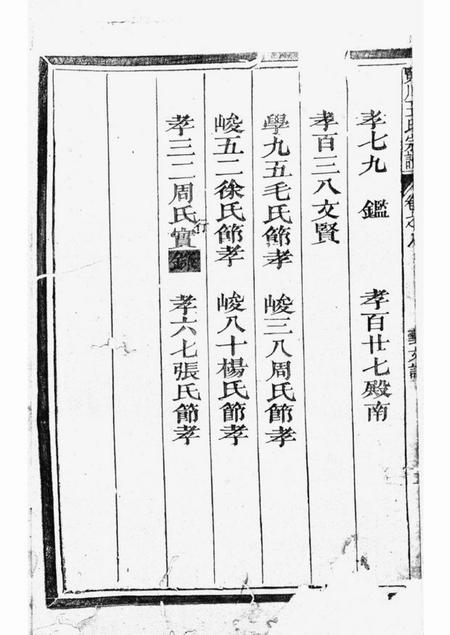 王氏宗譜 卷之八 藝文
孝七九 鑑 孝百廿七殿南
孝百三八文賢
學九五毛氏節孝 峻三八周氏節孝
峻五二徐氏節孝 峻八十楊氏節孝
孝三二周氏實行錄 孝六七張氏節孝